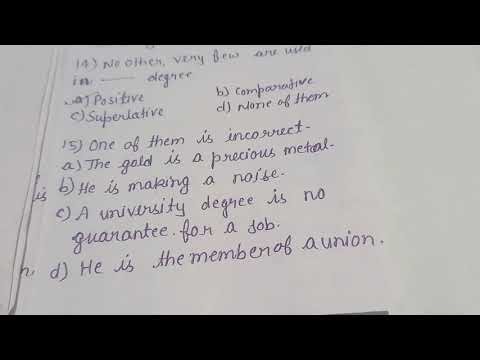 14) No other, very few are used
in —— degree
a) Positive b) Comparative
c) Superlative d) None of them
15) One of them is incorrect.
a) The gold is a precious metal.
is b) He is making a noise.
c) A university degree is no
guarantee for a Job.
d) He is the member of a union.